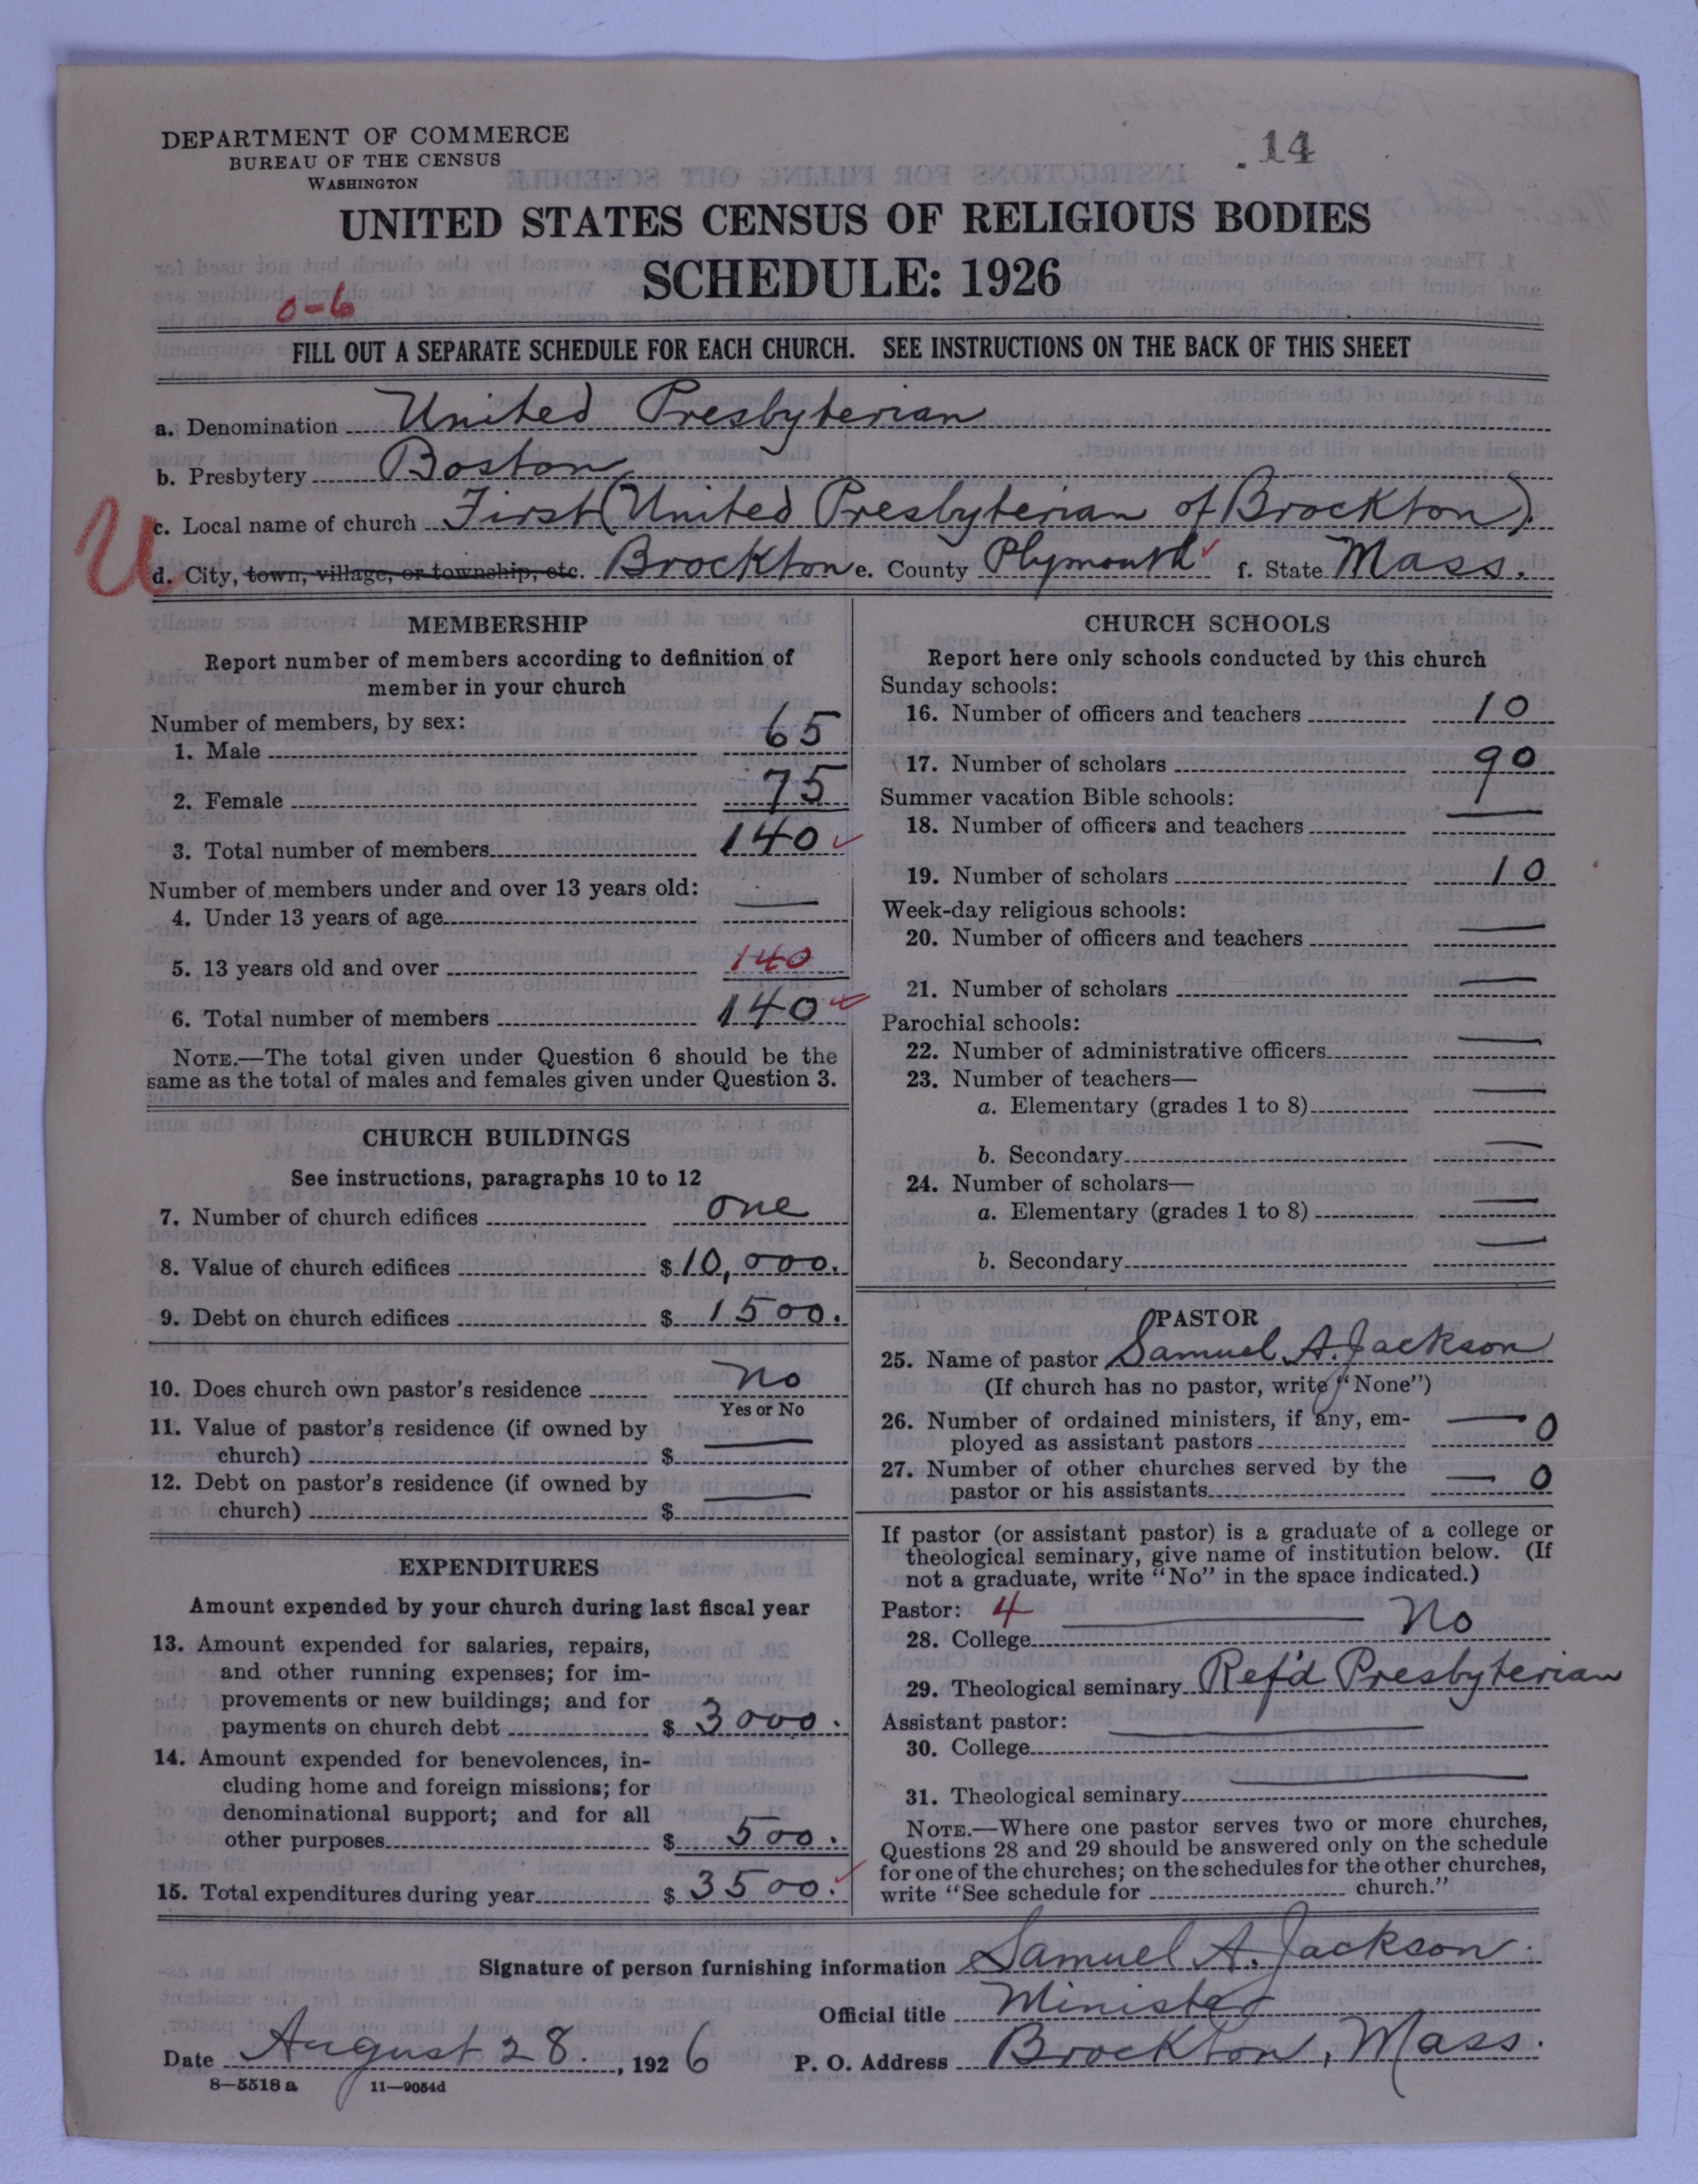 DEPARTMENT OF COMMERCE
BUREAU OF THE CENSUS
WASHINGTON
.14
UNITED STATES CENSUS OF RELIGIOUS BODIES
SCHEDULE: 1926
0-6
FILL OUT A SEPARATE SCHEDULE FOR EACH CHURCH. SEE INSTRUCTIONS ON THE BACK OF THIS SHEET
a. Denomination United Presbyterian
b. Presbytery Boston
c. Local name of church First (United Presbyterian of Brockton).
U
d. City, town, village, or township, etc. Brockton e. County Plymouth f. State Mass.
MEMBERSHIP
Report number of members according to definition of
member in your church
Number of members, by sex:
1. Male 65
2. Female 75
3. Total number of members 140
Number of members under and over 13 years old:
4. Under 13 years of age —
5. 13 years old and over 140
6. Total number of members 140
NOTE.—The total given under Question 6 should be the
same as the total of males and females given under Question 3.
CHURCH BUILDINGS
See instructions, paragraphs 10 to 12
7. Number of church edifices one
8. Value of church edifices $10,000.
9. Debt on church edifices $ 1500.
10. Does church own pastor's residence no
Yes or No
11. Value of pastor's residence (if owned by
church) $ —
12. Debt on pastor's residence (if owned by
church) $ —
EXPENDITURES
Amount expended by your church during last fiscal year
13. Amount expended for salaries, repairs,
and other running expenses; for im-
provements or new buildings; and for
payments on church debt $ 3000.
14. Amount expended for benevolences, in-
cluding home and foreign missions; for
denominational support; and for all
other purposes $ 500.
15. Total expenditures during year $ 3500.
CHURCH SCHOOLS
Report here only schools conducted by this church
Sunday schools:
16. Number of officers and teachers 10
17. Number of scholars 90
Summer vacation Bible schools:
18. Number of officers and teachers —
19. Number of scholars 10
Week-day religious schools:
20. Number of officers and teachers —
21. Number of scholars —
Parochial schools:
22. Number of administrative officers —
23. Number of teachers—
a. Elementary (grades 1 to 8) —
b. Secondary —
24. Number of scholars—
a. Elementary (grades 1 to 8) —
b. Secondary —
PASTOR
25. Name of pastor Samuel A. Jackson
(If church has no pastor, write "None")
26. Number of ordained ministers, if any, em-
ployed as assistant pastors — 0
27. Number of other churches served by the
pastor or his assistants — 0
If pastor (or assistant pastor) is a graduate of a college or
theological seminary, give name of institution below. (If
not a graduate, write "No" in the space indicated.)
Pastor: 4
28. College — No
29. Theological seminary Ref'd Presbyterian
Assistant pastor:
30. College —
31. Theological seminary —
NOTE.—Where one pastor serves two or more churches,
Questions 28 and 29 should be answered only on the schedule
for one of the churches; on the schedules for the other churches,
write "See schedule for church."
Signature of person furnishing information Samuel A. Jackson.
Official title Minister
Date August 28., 1926 P. O. Address Brockton, Mass.
8—5518 a 11—9054d